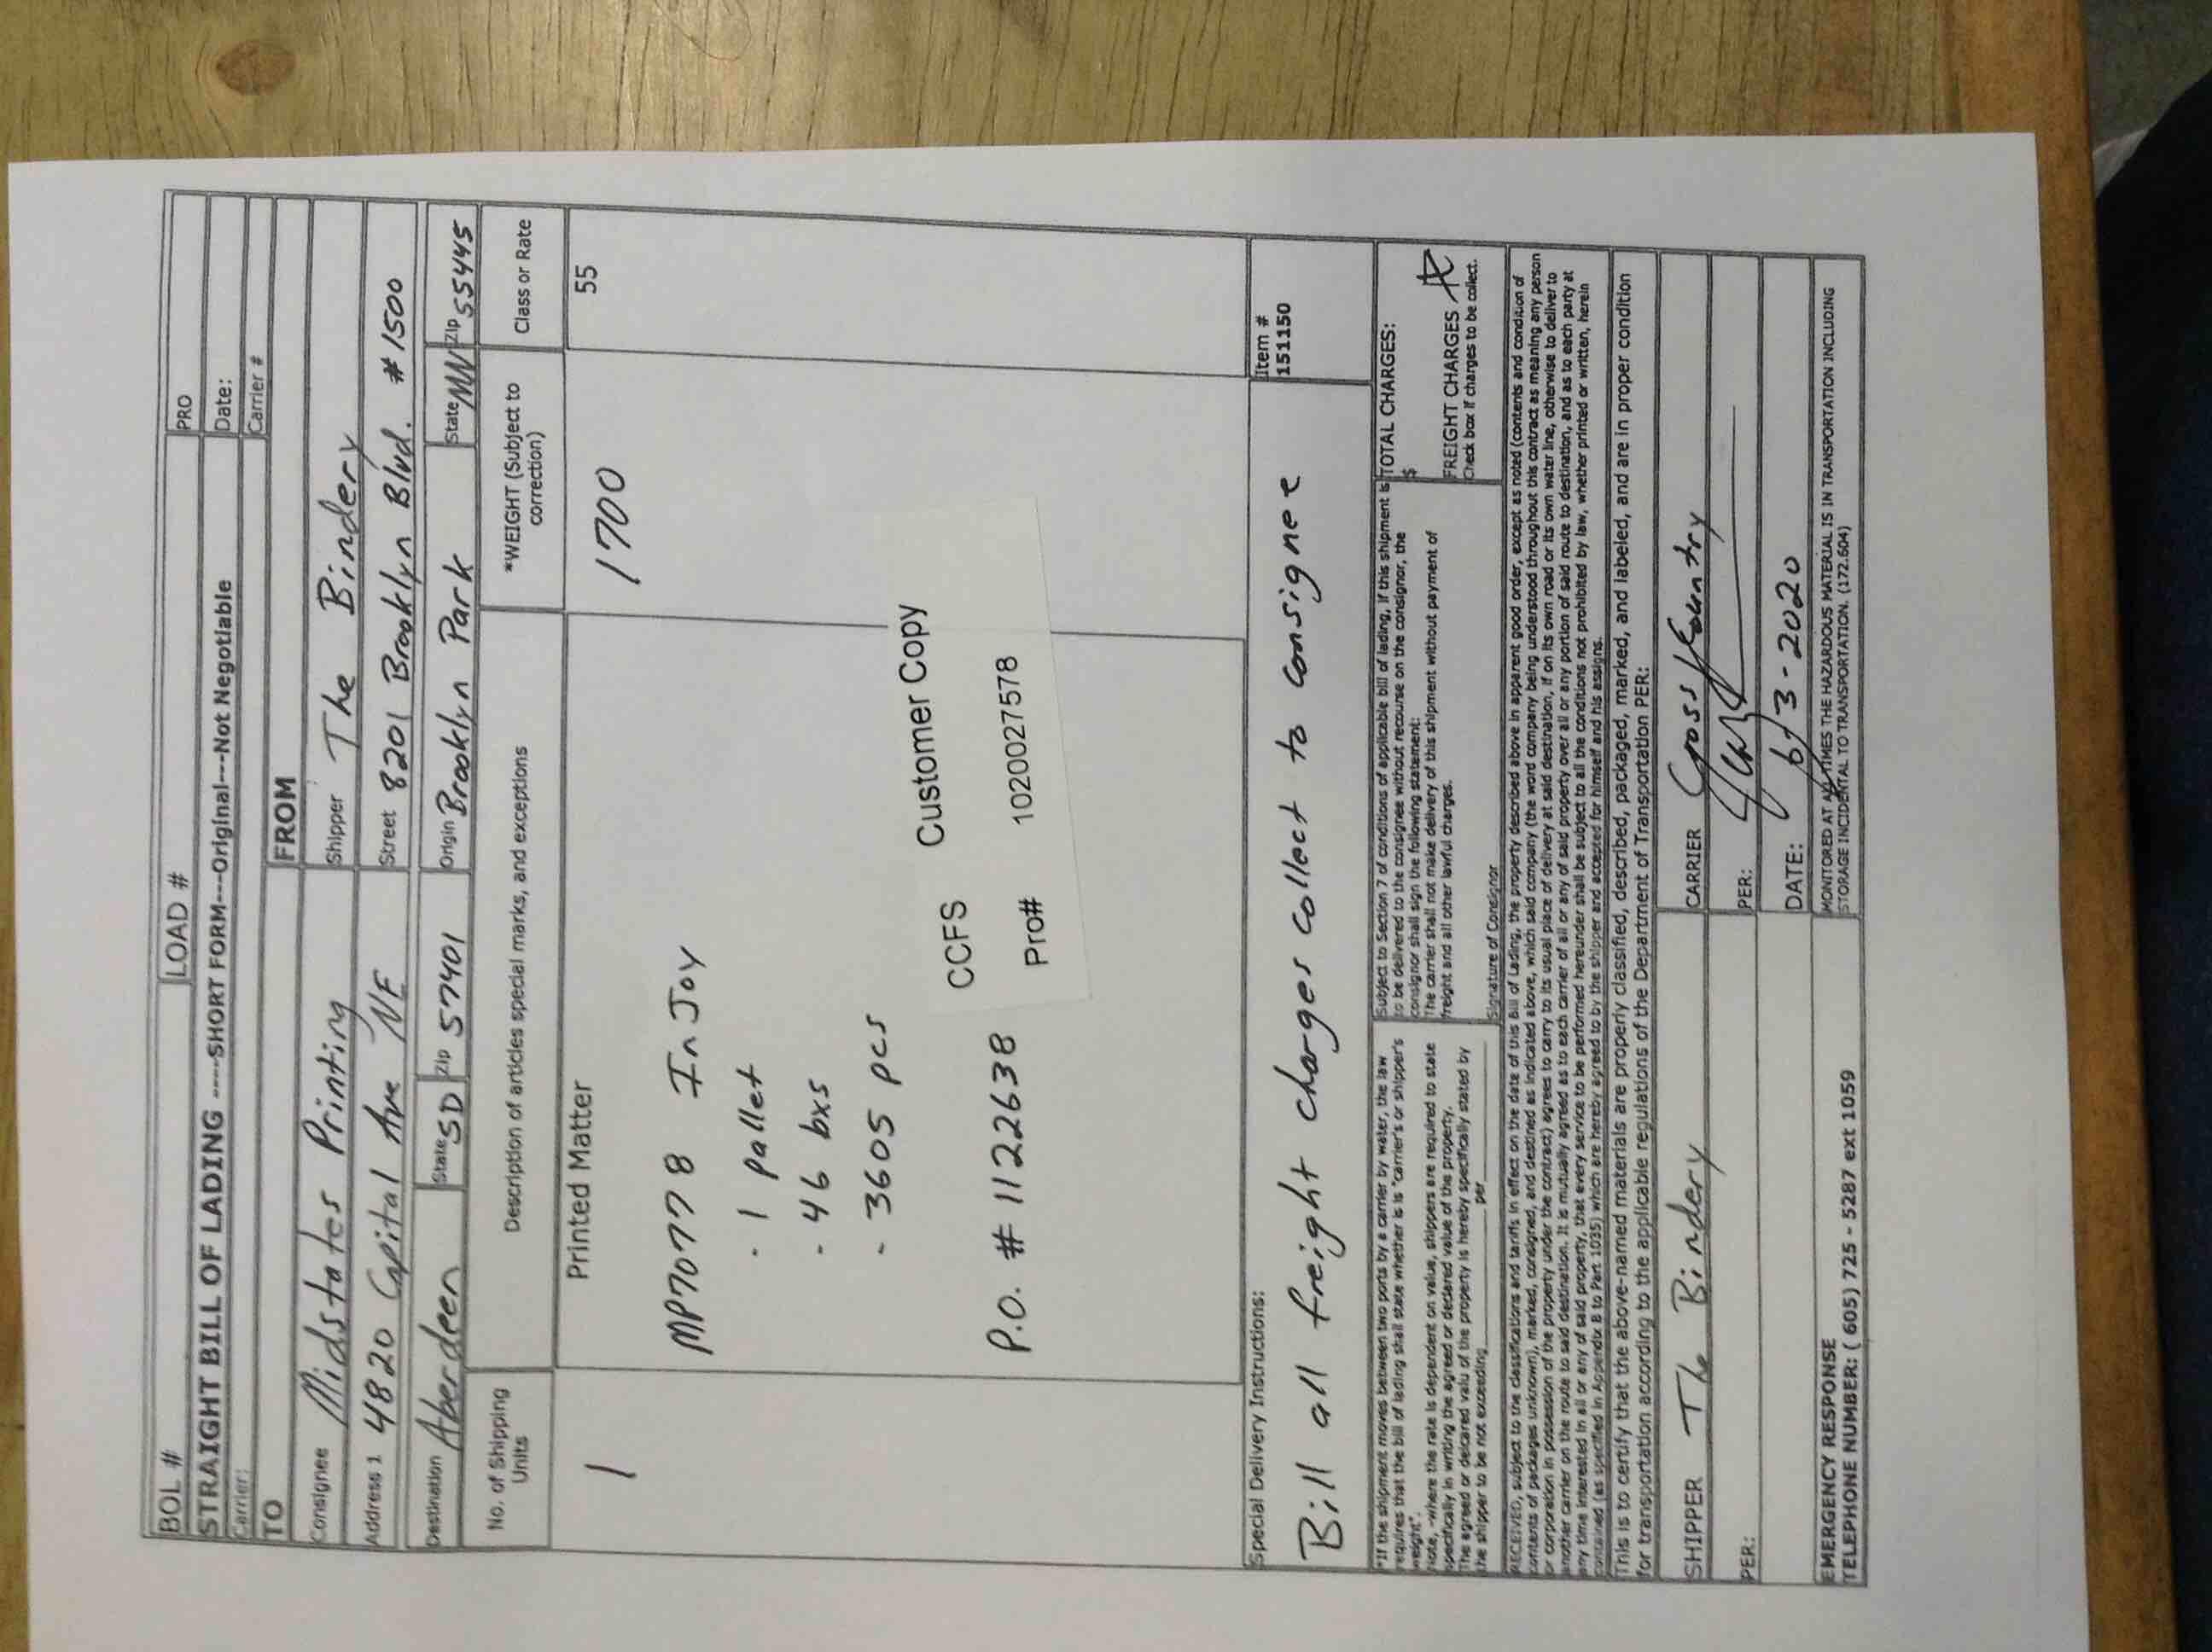 BOL # LOAD # PRO
STRAIGHT BILL OF LADING ----SHORT FORM---Original---Not Negotiable Date:
Carrier: Carrier #
TO FROM
Consignee Midstates Printing Shipper The Bindery
Address 1 4820 Capital Ave NE Street 8201 Brooklyn Blvd. #1500
Destination Aberdeen State SD Zip 57401 Origin Brooklyn Park State MN Zip 55445
No. of Shipping Units Description of articles special marks, and exceptions *WEIGHT (Subject to correction) Class or Rate
1 Printed Matter 1700 55
MP70778 InJoy
- 1 pallet
- 46 bxs
- 3605 pcs
CCFS Customer Copy
P.O. # 1122638
Pro# 1020027578
Special Delivery Instructions: Item #
151150
Bill all freight charges collect to consignee
*If the shipment moves between two ports by a carrier by water, the law
requires that the bill of lading shall state whether is is "carrier's or shipper's
weight".
Note, -where the rate is dependent on value, shippers are required to state
specifically in writing the agreed or declared value of the property.
The agreed or delcared valu of the property is hereby specifically stated by
the shipper to be not exceeding per
Subject to Section 7 of conditions of applicable bill of lading, if this shipment is
to be delivered to the consignee without recourse on the consignor, the
consignor shall sign the following statement:
The carrier shall not make delivery of this shipment without payment of
freight and all other lawful charges.
Signature of Consignor
TOTAL CHARGES:
$
FREIGHT CHARGES
Check box if charges to be collect.
RECEIVED, subject to the classifications and tariffs in effect on the date of this Bill of Lading, the property described above in apparent good order, except as noted (contents and condition of
contents of packages unknown), marked, consigned, and destined as indicated above, which said company (the word company being understood throughout this contract as meaning any person
or corporation in possession of the property under the contract) agrees to carry to its usual place of delivery at said destination, if on its own road or its own water line, otherwise to deliver to
another carrier on the route to said destination. It is mutually agreed as to each carrier of all or any of said property over all or any portion of said route to destination, and as to each party at
any time interested in all or any of said property, that every service to be performed hereunder shall be subject to all the conditions not prohibited by law, whether printed or written, herein
contained (as specified in Appendix B to Part 1035) which are hereby agreed to by the shipper and accepted for himself and his assigns.
This is to certify that the above-named materials are properly classified, described, packaged, marked, and labeled, and are in proper condition
for transportation according to the applicable regulations of the Department of Transportation PER:
SHIPPER The Bindery CARRIER Cross Country
PER: PER:
DATE: 6/3-2020
EMERGENCY RESPONSE
TELEPHONE NUMBER: ( 605) 725 - 5287 ext 1059
MONITORED AT ALL TIMES THE HAZARDOUS MATERIAL IS IN TRANSPORTATION INCLUDING
STORAGE INCIDENTAL TO TRANSPORTATION. (172.604)